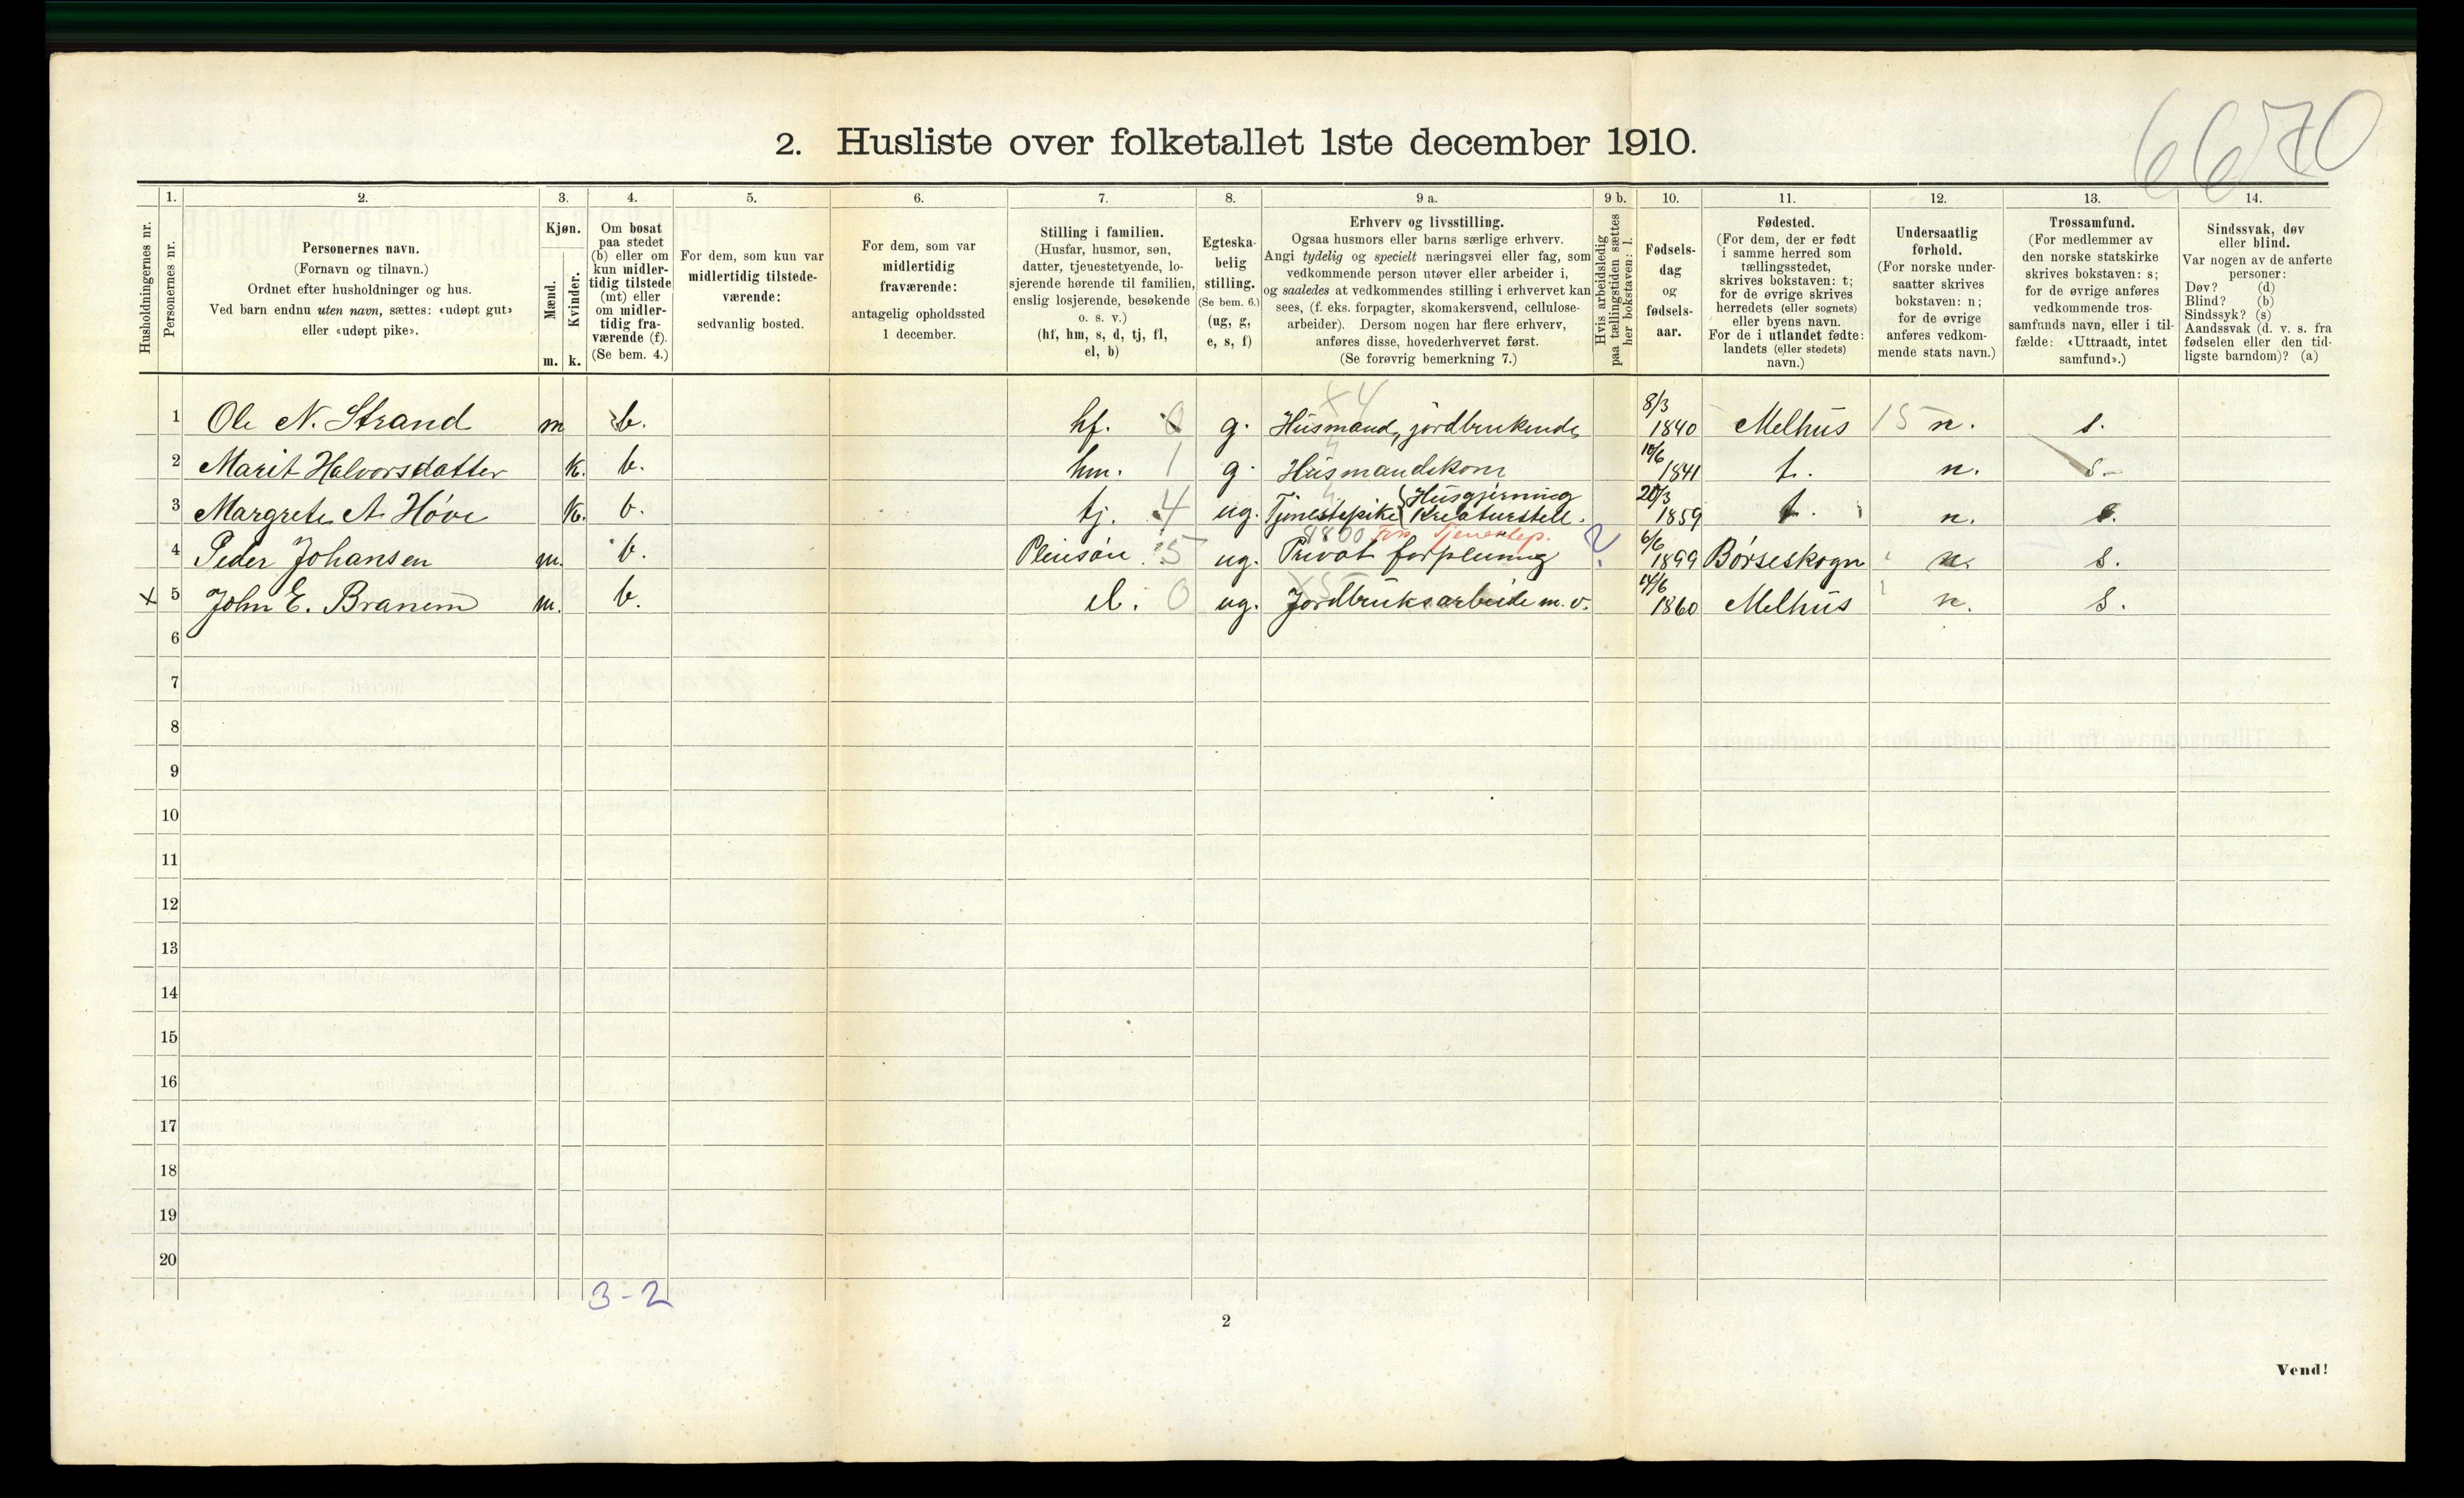 6670
2. Husliste over folketallet 1ste december 1910.
Husholdningernes nr.
1.
Personernes nr.
2.
Personernes navn.
(Fornavn og tilnavn.)
Ordnet efter husholdninger og hus.
Ved barn endnu uten navn, sættes: «udøpt gut»
eller «udøpt pike».
3.
Kjøn.
Mænd.
Kvinder.
m. k.
4.
Om bosat
paa stedet
(b) eller om
kun midler-
tidig tilstede
(mt) eller
om midler-
tidig fra-
værende (f).
(Se bem. 4.)
5.
For dem, som kun var
midlertidig tilstede-
værende:
sedvanlig bosted.
6.
For dem, som var
midlertidig
fraværende:
antagelig opholdssted
1 december.
7.
Stilling i familien.
(Husfar, husmor, søn,
datter, tjenestetyende, lo-
sjerende hørende til familien,
enslig losjerende, besøkende
o. s. v.)
(hf, hm, s, d, tj, fl,
el, b)
8.
Egteska-
belig
stilling.
(Se bem. 6.)
(ug, g,
e, s, f)
9 a.
Erhverv og livsstilling.
Ogsaa husmors eller barns særlige erhverv.
Angi tydelig og specielt næringsvei eller fag, som
vedkommende person utøver eller arbeider i,
og saaledes at vedkommendes stilling i erhvervet kan
sees, (f. eks. forpagter, skomakersvend, cellulose-
arbeider). Dersom nogen har flere erhverv,
anføres disse, hovederhvervet først.
(Se forøvrig bemerkning 7.)
9 b.
Hvis arbeidsledig
paa tællingstiden sættes
her bokstaven: l.
10.
Fødsels-
dag
og
fødsels-
aar.
11.
Fødested.
(For dem, der er født
i samme herred som
tællingsstedet,
skrives bokstaven: t;
for de øvrige skrives
herredets (eller sognets)
eller byens navn.
For de i utlandet fødte:
landets (eller stedets)
navn.)
12.
Undersaatlig
forhold.
(For norske under-
saatter skrives
bokstaven: n;
for de øvrige
anføres vedkom-
mende stats navn.)
13.
Trossamfund.
(For medlemmer av
den norske statskirke
skrives bokstaven: s;
for de øvrige anføres
vedkommende tros-
samfunds navn, eller i til-
fælde: «Uttraadt, intet
samfund».)
14.
Sindssvak, døv
eller blind.
Var nogen av de anførte
personer:
Døv? (d)
Blind? (b)
Sindssyk? (s)
Aandssvak (d. v. s. fra
fødselen eller den tid-
ligste barndom)? (a)
X4
1 Ole N. Strand m b. hf. 0 g. Husmand, jordbrukende 8/3 1840 Melhus 15 n. s.
2 Marit Halvorsdatter k. b. hm. 1 g. Husmandskone 10/6 1841 t. n. s.
3 Margrete A. Høve k. b. tj. 4 ug. Tjenestepike { Husgjerning Kreaturstell. 20/3 1859 t. n. s.
8800
4 Peder Johansen m. b. Pleiesøn 5 ug. Privat forpleining ? 6/6 1899 Børseskogn n. s.
X5
X 5 John E. Branem m. b. el. 0 ug. Jordbruksarbeide m. v. 14/6 1860 Melhus n. s.
6
7
8
9
10
11
12
13
14
15
16
17
18
19
20
3-2
2
Vend!